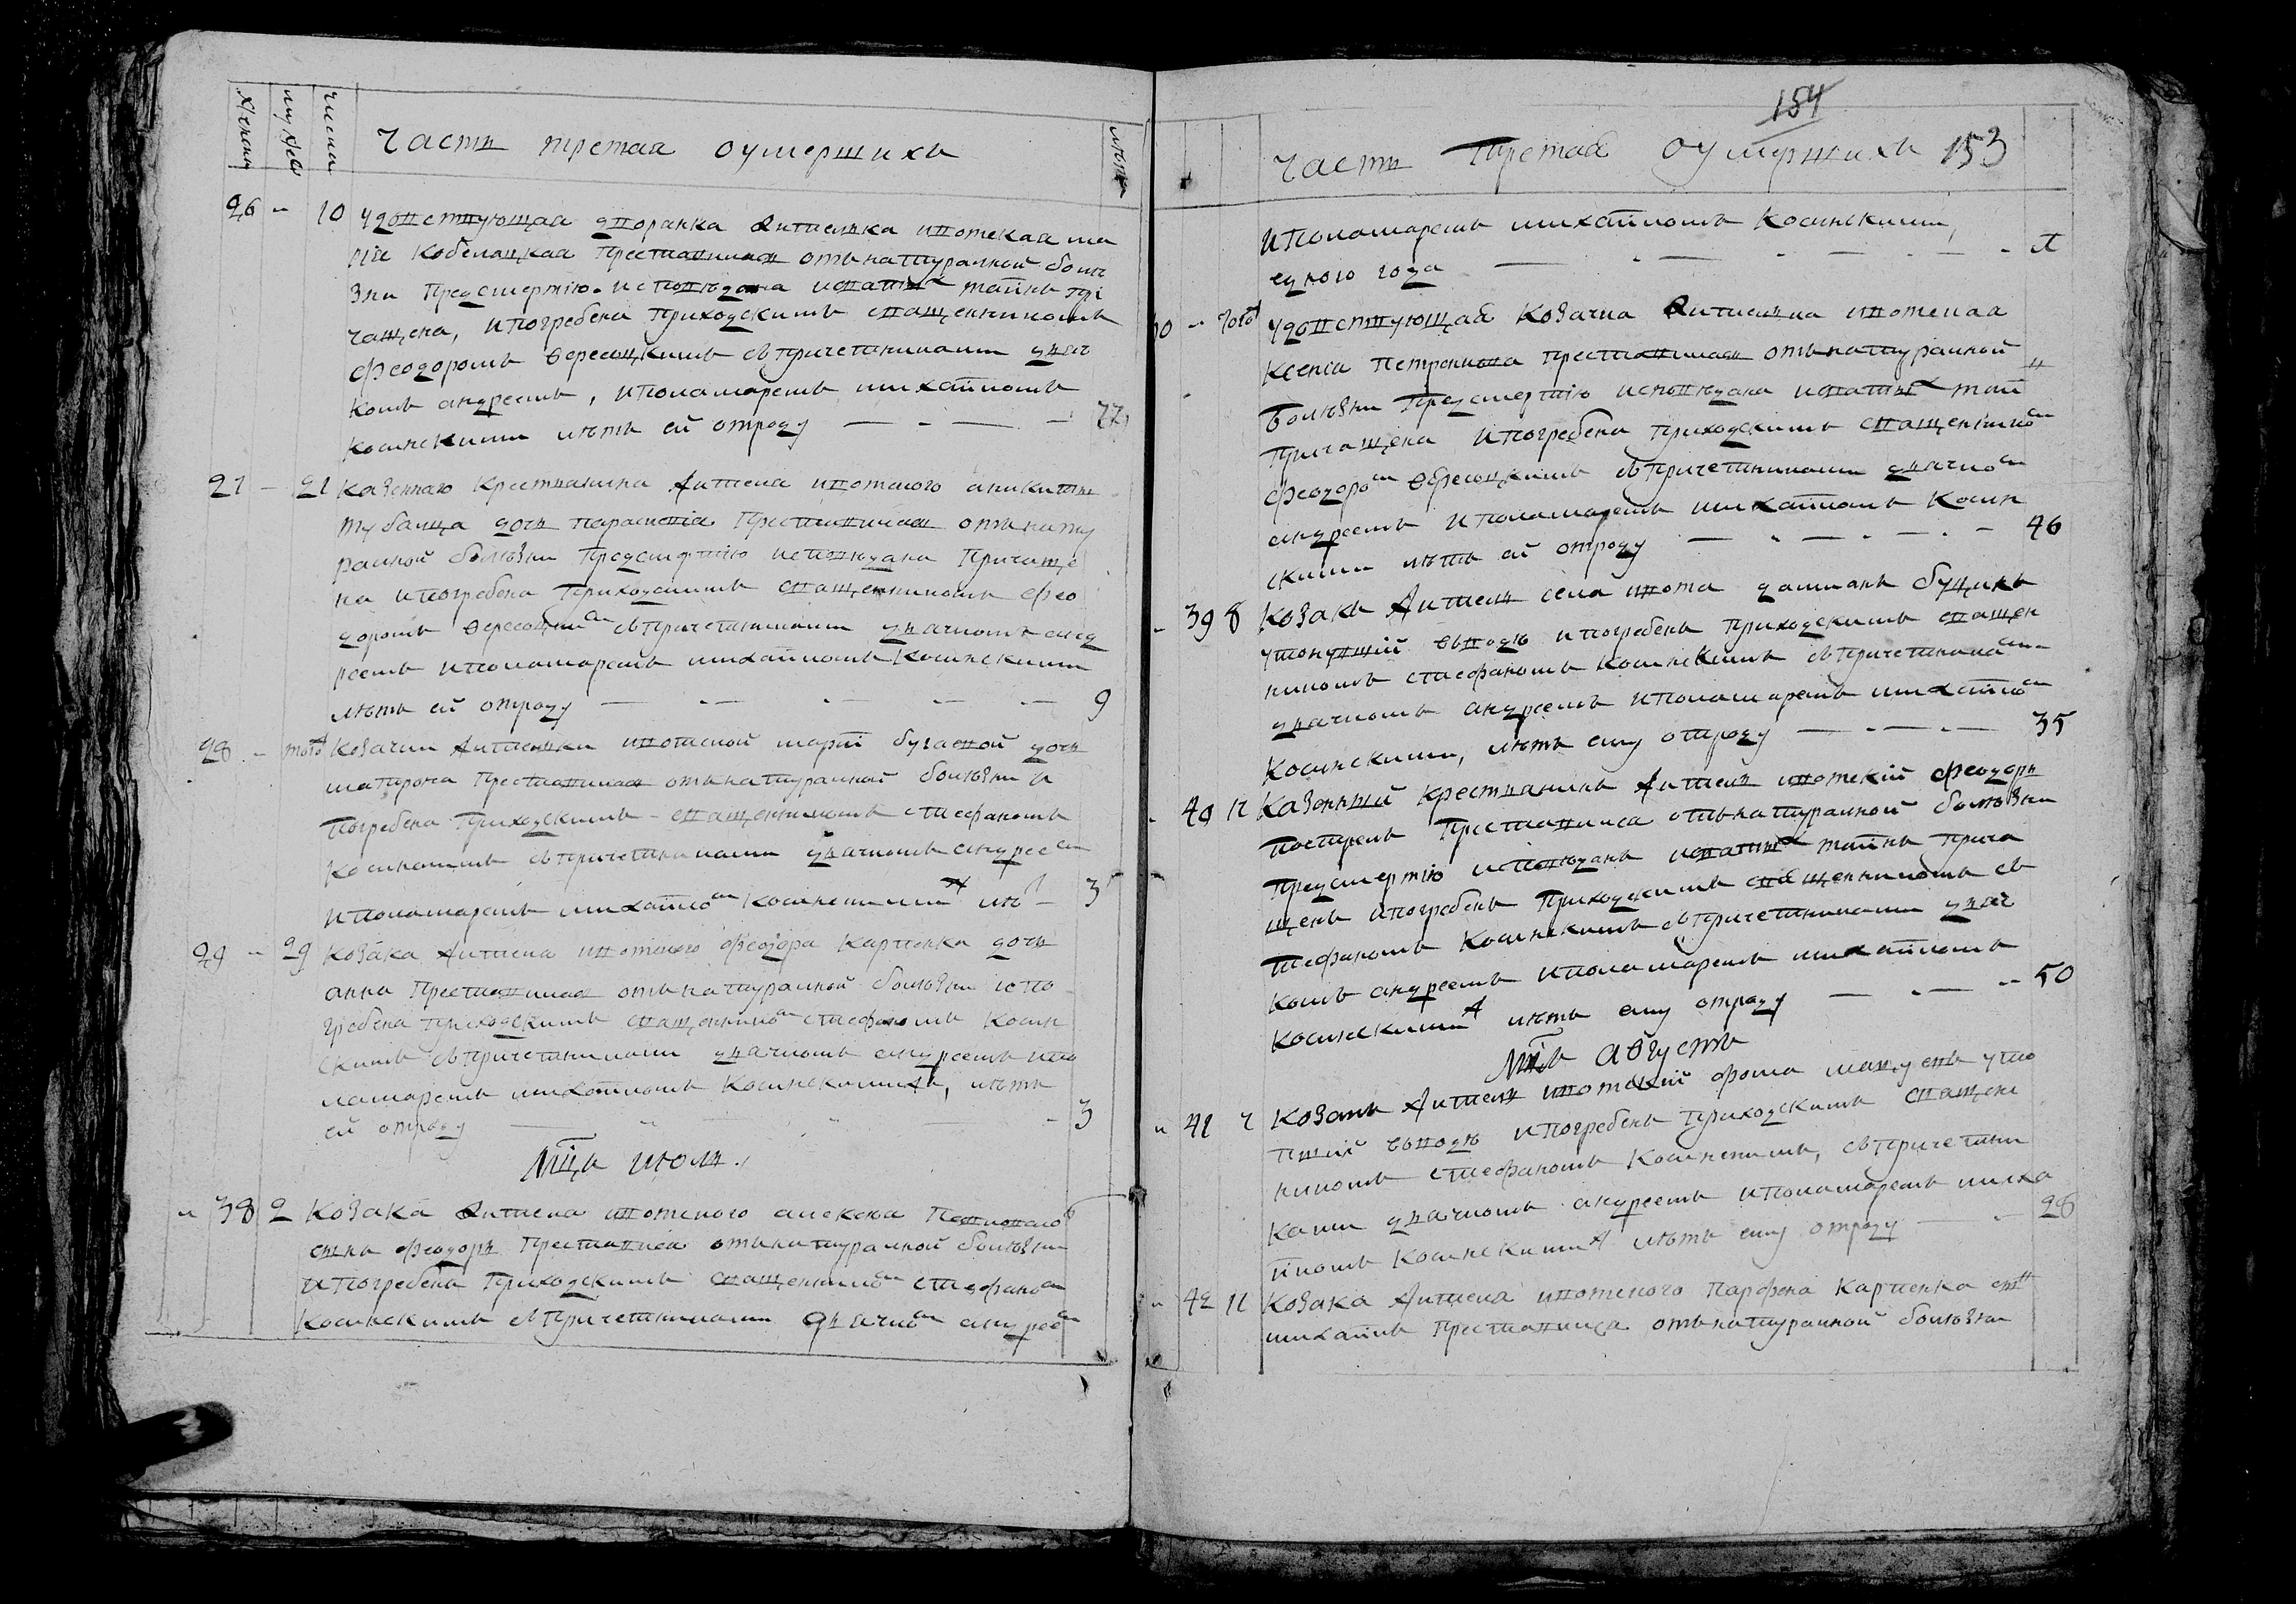 женска
мужеска
числа
Часть третая оумершихъ
лѣта
26 - 10 удовствующая дворянка жителька ивотская ма
рія Кобелацкая Преставилась отънатуралной болѣ
зни Предсмертію исповѣдана исвятыхъ таинъ прі
чащена, ипогребена приходскимъ священникомъ
Феодоромъ Вересоцкимъ съпричетниками дяч
комъ андреемъ, ипонамаремъ михайломъ
косинскими лѣтъ ей отроду — - — - 77
27 - 21 казенного крестьянина жителя ивотского аникитъ
губанца дочь параскевіа Преставилась отънату
ралной болѣзни Предсмертію исповѣдана Причаще
на ипогребена Приходскимъ священникомъ фео
доромъ вересоцким съпричетниками дячкомъ анд
реемъ ипонамаремъ михайломъ косинскими
лѣтъ ей отроду — - — - — - — 9
28 - того козачки жителки ивотской марѳи бугаевой дочь
матрона Преставилась отънатуралной болѣзни и
погребена приходскимъ священникомъ стефаномъ
косинскимъ съпричетниками дячкомъ андреем
ипонамаремъ михайлом косинскими лѣ - 3
29 - 29 козака жителя ивотского феодора карпенка дочь
анна Преставилась отънатуралной болѣзни ипо
гребена приходскимъ священником стефаномъ косин
скимъ съпричетниками дячкомъ андреемъ ипо
намаремъ михайломъ косинскими, лѣтъ
ей отроду — - 3
Мцъ июль.
- 38 2 козака жителя ивотского алексѣя
сынъ феодоръ Преставился отънатуралной болѣзни
ипогребенъ Приходскимъ священником стефаном
косинскимъ съпричетниками дячком андреем
154
Часть третая оумершихъ 153
ипонамаремъ михайломъ косинскими,
едного года — - — - — - 1
30 - того удовствующая козачка жителька ивотская
ксеніа петренкова преставилась отънатуралной
болѣзни Предсмертію исповѣдана исвятыхъ таинъ
Причащена ипогребена приходскимъ священником
феодором вересоцкимъ съпричетниками дячком
андреемъ ипонамаремъ михайломъ косин
скими лѣтъ ей отроду — - — - — - 46
- 39 8 козакъ житель села ивота даміанъ
утонувшій въводѣ ипогребенъ Приходскимъ священ
никомъ стефаномъ косинскимъ съпричетниками
дячкомъ андреемъ ипонамаремъ михайлом
косинскими, лѣтъ ему отроду — - — - — 35
- 40 11 казенный крестьянинъ житель ивотскій феодоръ
Преставился отънатуралной болѣзни
Предсмертію исповѣданъ исвятыхъ таинъ прича
щенъ ипогребенъ Приходскимъ священникомъ с
тефаномъ косинскимъ съпричетниками дяч
комъ андреемъ ипонамаремъ михайломъ
косинскими лѣтъ ему отроду — - — - 50
Мцъ августъ
- 41 2 козакъ житель ивотскій фома уто
пшій въводѣ ипогребенъ Приходскимъ священ
никомъ стефаномъ косинскимъ, съпричетни
ками дячкомъ андреемъ ипонамаремъ миха
йломъ косинскими лѣтъ ему отроду — - 28
- 42 11 козака жителя ивотского Парфена карпенка сын
михаилъ Преставился отънатуралной болѣзни